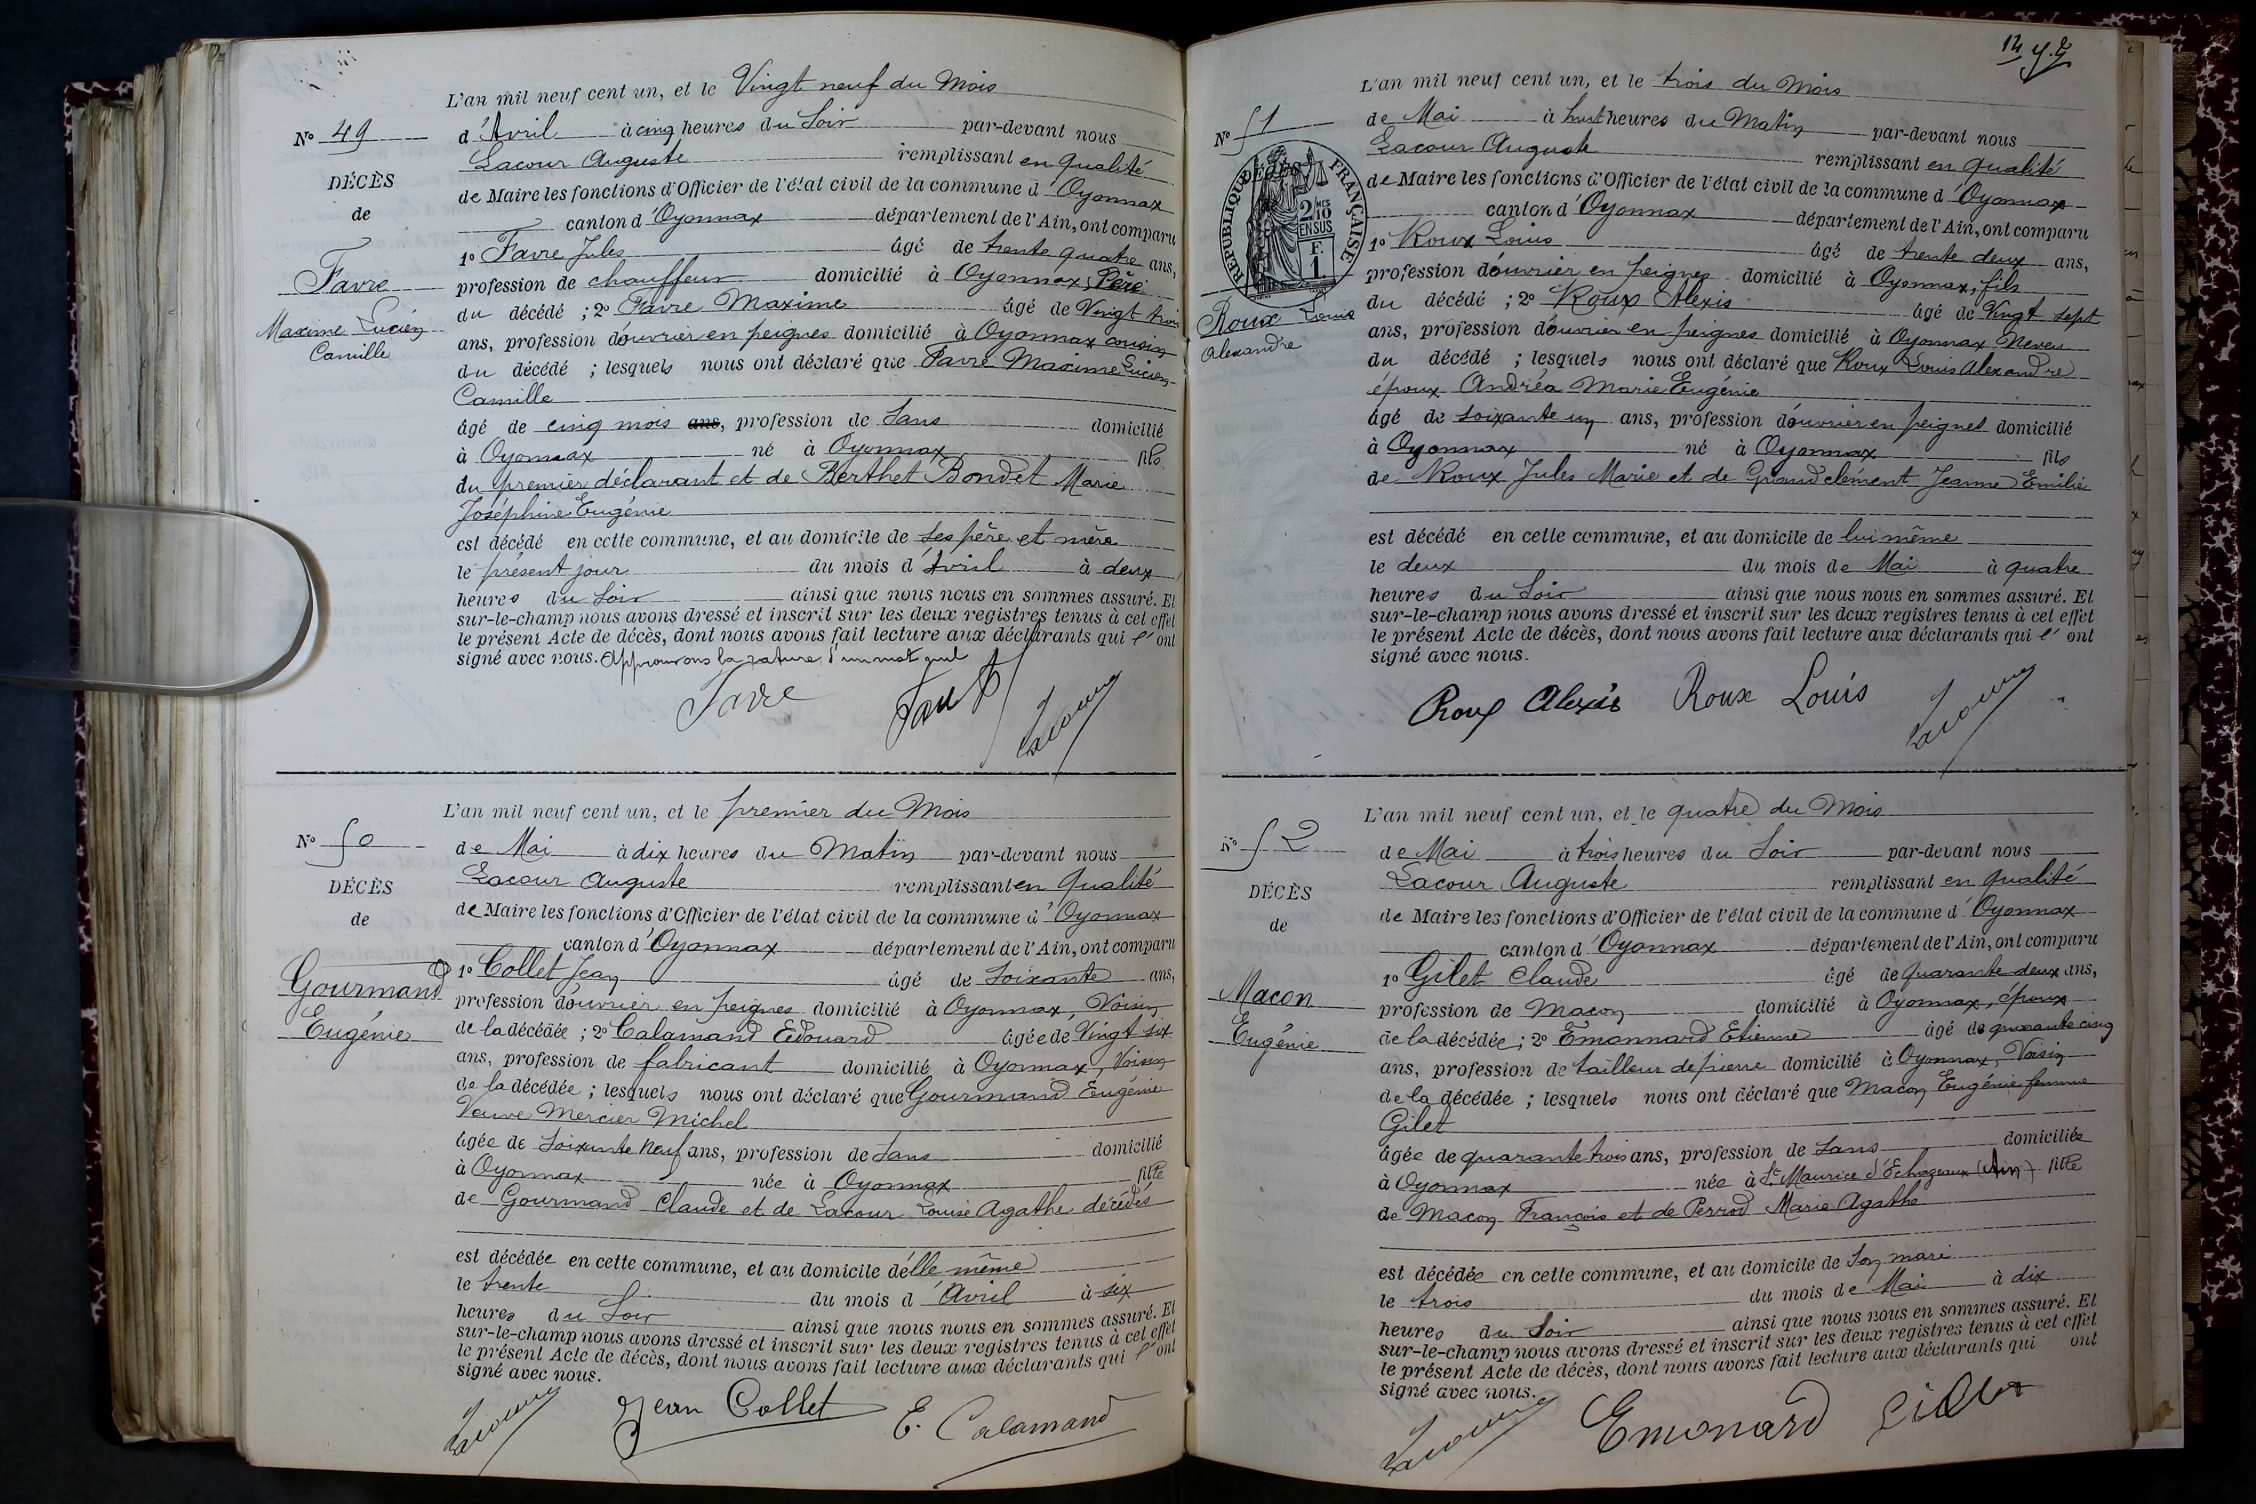 L'an mil neuf cent un, et le Vingt neuf du Mois
N° 49
d'Avril à cinq heures du Soir par-devant nous
Lacour Auguste remplissant en qualité
DÉCÈS
de Maire les fonctions d'Officier de l'état civil de la commune d'Oyonnax
de
canton d'Oyonnax département de l'Ain, ont comparu
1° Favre Jules âgé de trente quatre ans,
Favre
profession de chauffeur domicilié à Oyonnax, Père
Maxime Lucien
Camille
du décédé ; 2° Favre Maxime âgé de Vingt trois
ans, profession d'ouvrier en peignes domicilié à Oyonnax cousin
du décédé ; lesquels nous ont déclaré que Favre Maxime Lucien
Camille
âgé de cinq mois ans, profession de Sans domicilié
à Oyonnax né à Oyonnax fils
du premier déclarant et de Berthet Bondet Marie
Joséphine Eugénie
est décédé en cette commune, et au domicile de ses père et mère
le présent jour du mois d'Avril à deux
heures du Soir ainsi que nous nous en sommes assuré. Et
sur-le-champ nous avons dressé et inscrit sur les deux registres tenus à cet effet
le présent Acte de décès, dont nous avons fait lecture aux déclarants qui l'ont
signé avec nous. Approuvons la rature d'un mot nul
Favre
Lacour
L'an mil neuf cent un, et le premier du Mois
N° 50
de Mai à dix heures du Matin par-devant nous
Lacour Auguste remplissant en qualité
DÉCÈS
de Maire les fonctions d'Officier de l'état civil de la commune d'Oyonnax
de
canton d'Oyonnax département de l'Ain, ont comparu
1° Collet Jean âgé de Soixante ans,
Gourmand
Eugénie
profession d'ouvrier en peignes domicilié à Oyonnax, Voisin
de la décédée ; 2° Calamand Edouard âgée de Vingt six
ans, profession de fabricant domicilié à Oyonnax, Voisin
de la décédée ; lesquels nous ont déclaré que Gourmand Eugénie
Veuve Mercier Michel
âgée de Soixante neuf ans, profession de Sans domicilié
à Oyonnax née à Oyonnax fille
de Gourmand Claude et de Lacour Louise Agathe décédés
est décédée en cette commune, et au domicile d'elle même
le trente du mois d'Avril à six
heures du Soir ainsi que nous nous en sommes assuré. Et
sur-le-champ nous avons dressé et inscrit sur les deux registres tenus à cet effet
le présent Acte de décès, dont nous avons fait lecture aux déclarants qui l'ont
signé avec nous.
Lacour Jean Collet E. Calamand
L'an mil neuf cent un, et le trois du Mois
N° 51
de Mai à huit heures du Matin par-devant nous
Lacour Auguste remplissant en qualité
DÉCÈS
RÉPUBLIQUE FRANÇAISE
2 MES
10
EN SUS
F.
1.
de Maire les fonctions d'Officier de l'état civil de la commune d'Oyonnax
canton d'Oyonnax département de l'Ain, ont comparu
1° Roux Louis âgé de trente deux ans,
profession d'ouvrier en peignes domicilié à Oyonnax, fils
Roux Louis
Alexandre
du décédé ; 2° Roux Alexis âgé de Vingt sept
ans, profession d'ouvrier en peignes domicilié à Oyonnax Neveu
du décédé ; lesquels nous ont déclaré que Roux Louis Alexandre
époux Andréa Marie Eugénie
âgé de soixante un ans, profession d'ouvrier en peignes domicilié
à Oyonnax né à Oyonnax fils
de Roux Jules Marie et de Grandclément Jeanne Emilie
est décédé en cette commune, et au domicile de lui même
le deux du mois de Mai à quatre
heures du Soir ainsi que nous nous en sommes assuré. Et
sur-le-champ nous avons dressé et inscrit sur les deux registres tenus à cet effet
le présent Acte de décès, dont nous avons fait lecture aux déclarants qui l'ont
signé avec nous.
Roux Alexis Roux Louis Lacour
L'an mil neuf cent un, et le quatre du Mois
N° 52
de Mai à trois heures du Soir par-devant nous
Lacour Auguste remplissant en qualité
DÉCÈS
de Maire les fonctions d'Officier de l'état civil de la commune d'Oyonnax
de
canton d'Oyonnax département de l'Ain, ont comparu
1° Gilet Claude âgé de quarante deux ans,
Macon
Eugénie
profession de Maçon domicilié à Oyonnax, époux
de la décédée ; 2° Emonnard Etienne âgé de quarante cinq
ans, profession de tailleur de pierre domicilié à Oyonnax, Voisin
de la décédée ; lesquels nous ont déclaré que Macon Eugénie femme
Gilet
âgée de quarante trois ans, profession de Sans domiciliée
à Oyonnax née à St Maurice d'Echazeaux (Ain) fille
de Macon François et de Perrod Marie Agathe
est décédée en cette commune, et au domicile de Son mari
le trois du mois de Mai à dix
heures du Soir ainsi que nous nous en sommes assuré. Et
sur-le-champ nous avons dressé et inscrit sur les deux registres tenus à cet effet
le présent Acte de décès, dont nous avons fait lecture aux déclarants qui ont
signé avec nous.
Lacour Emonard Gillet